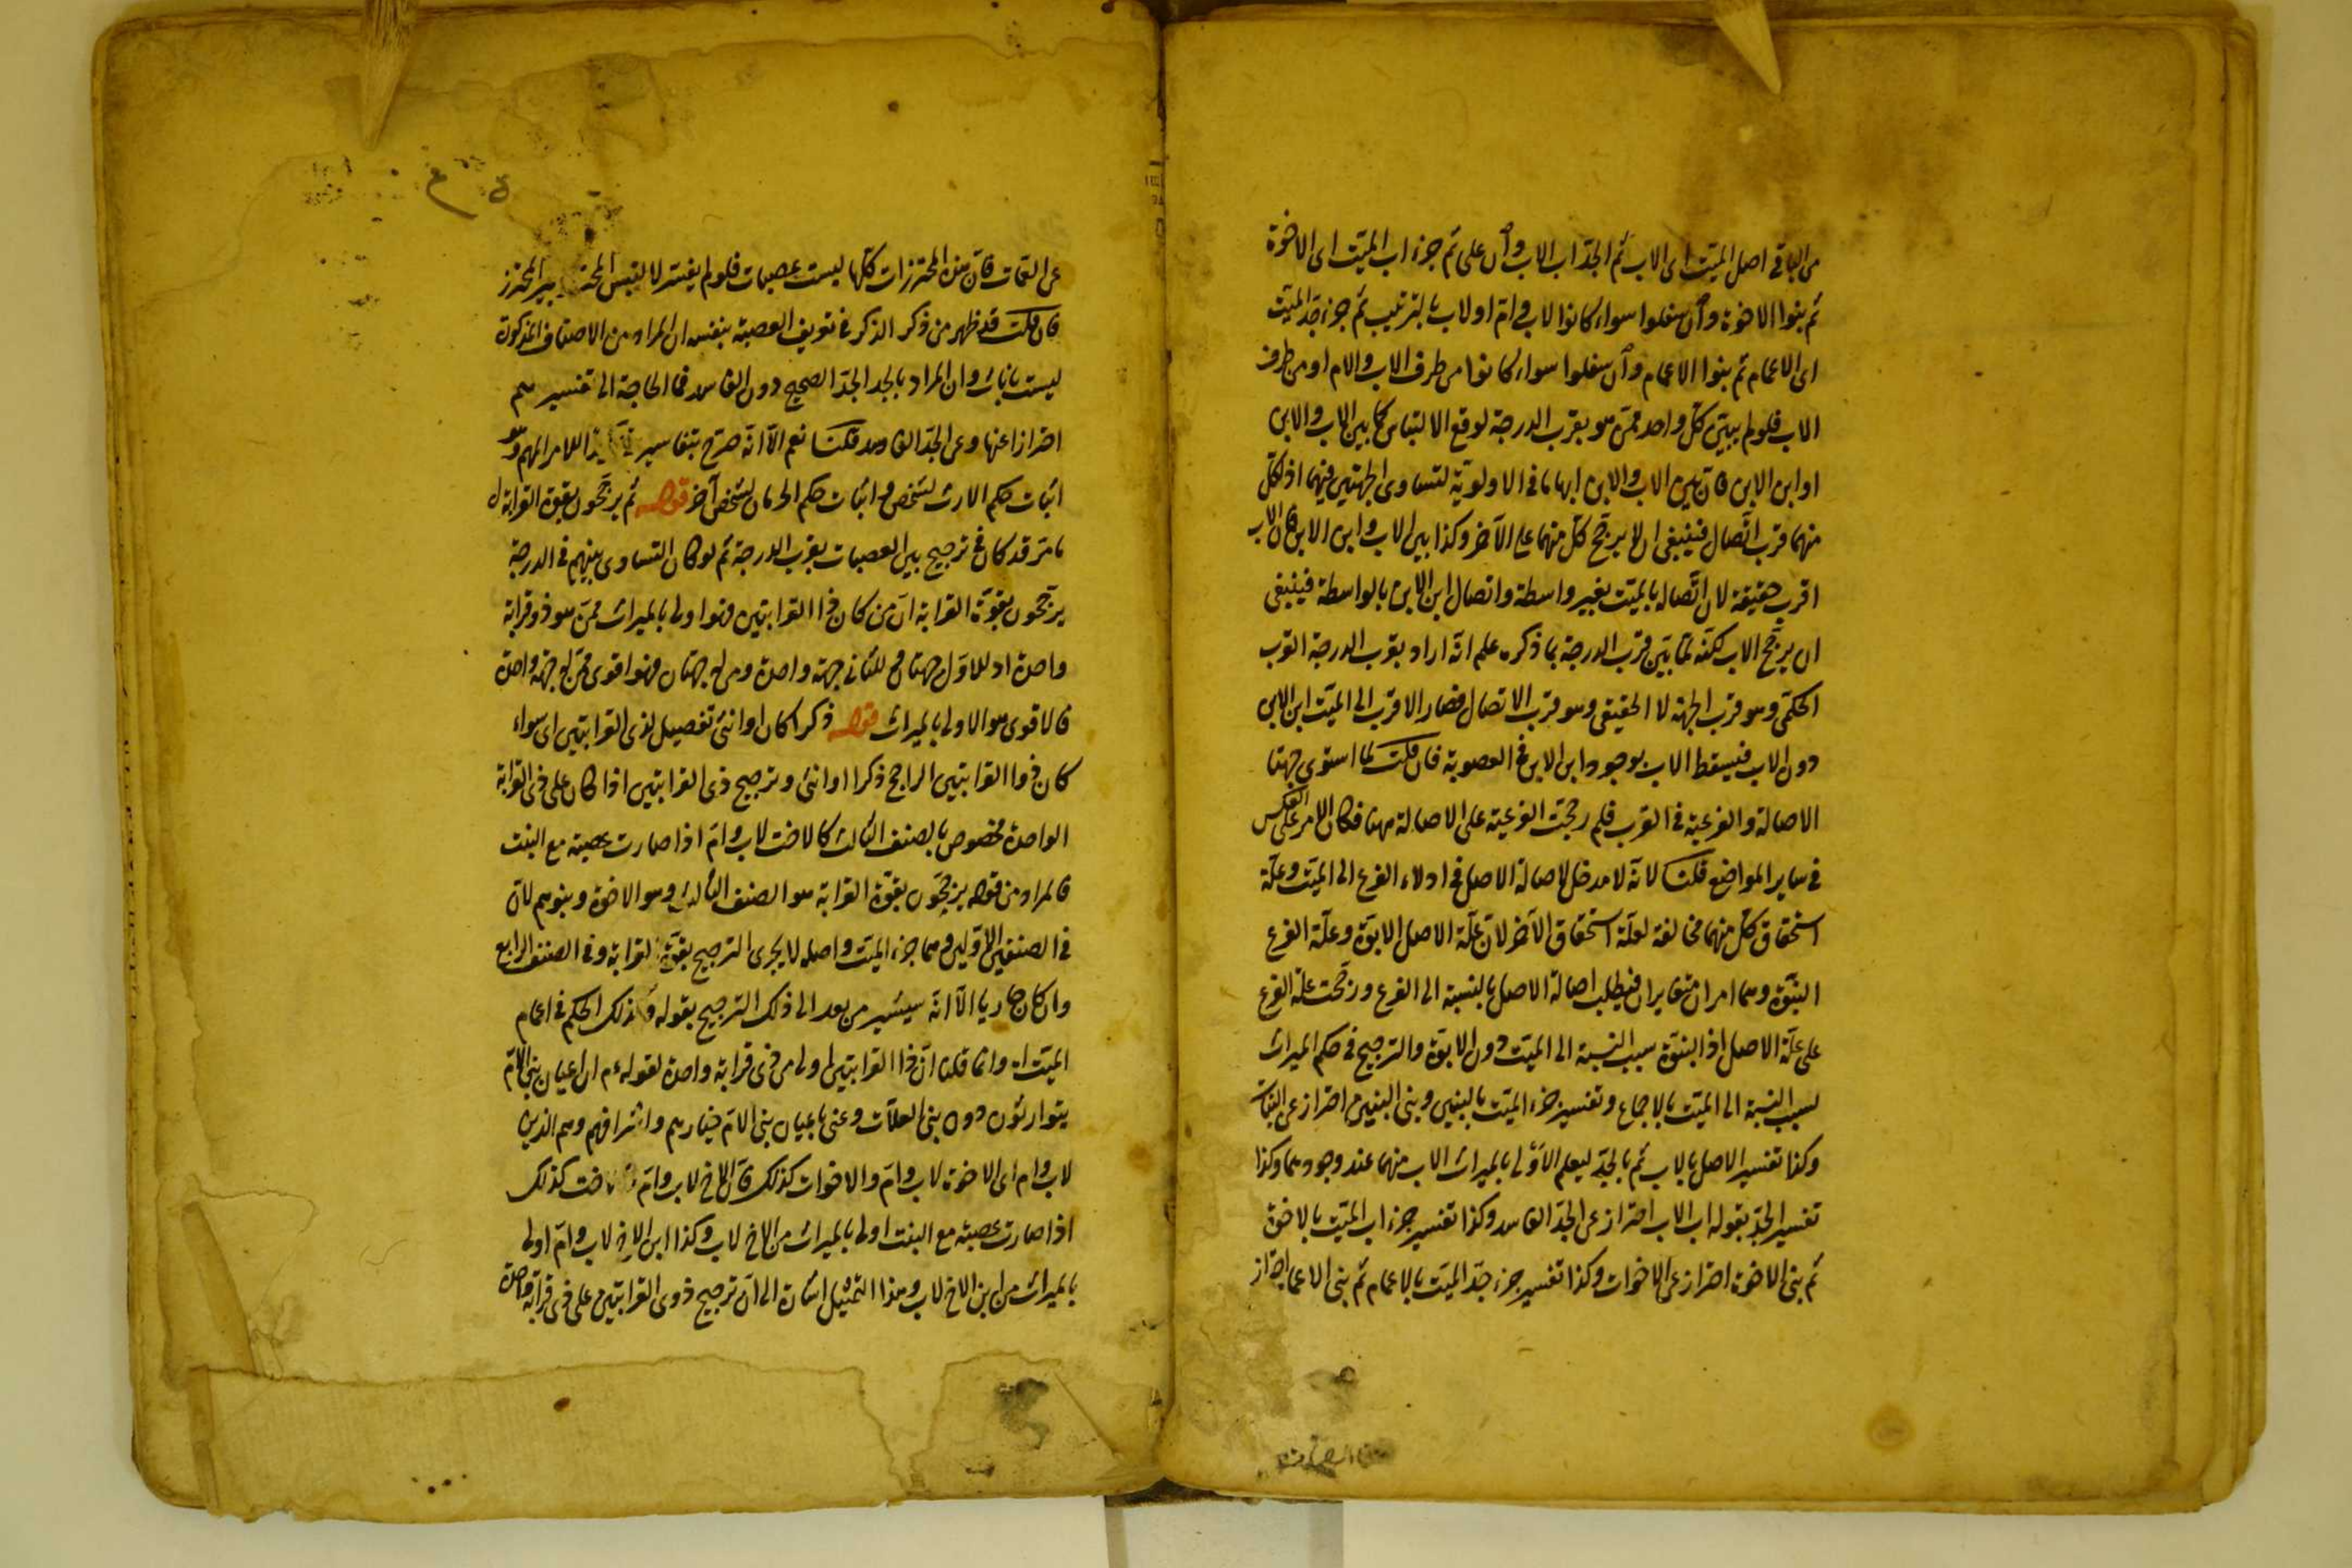 من الباقى اصل الميت اى الاب ثم الجد اب الاب وان على ثم جزء اب الميت اى الاخوة
ثم بنوا الاخوة وان سفلوا سواء كانوا لاب وام او لاب بالترتيب ثم جزء جد الميت
اى الاعمام ثم بنوا الاعمام وان سفلوا سواء كانوا من طرف الاب والام او من طرف
الاب فلو لم يبين كل واحد ممن هو بقرب الدرجة لوقع الالتباس كما بين الاب والابن
او ابن الابن فان بين الاب والابن ابهاما فى الاولوية لتساوى الجهتين فيهما اذ لكل
منهما قرب اتصال فينبغى ان لا يرجح كل منهما على الآخر وكذا بين الاب وابن الابن فان الاب
اقرب حقيقة لان اتصاله بالميت بغير واسطة واتصال ابن الابن بالواسطة فينبغى
ان يرجح الاب لكنه لما بين قرب الدرجة بما ذكره علم انه اراد بقرب الدرجة القرب
الحكمى وهو قرب الجهة لا الحقيقى وهو قرب الاتصال فصار الاقرب الى الميت ابن الابن
دون الاب فيسقط الاب بوجود ابن الابن فى العصوبة فان قلت لما استوى جهتا
الاصالة والفرعية فى القرب فلم رجحت الفرعية على الاصالة مهنا فكان الامر على العكس
فى ساير المواضع قلت لانه لا مدخل لاصالة الاصل فى ادلاء الفرع الى الميت وعلة
استحقاق كل منهما مخالفة لعلة استحقاق الآخر لان علة الاصل الابوة وعلة الفرع
البنوة وهما امران متغايران فيطلب اصالة الاصل بالنسبة الى الفرع ورجحت علة الفرع
على علة الاصل اذ البنوة سبب النسبة الى الميت دون الابوة والترجيح فى حكم الميراث
لسبب النسبة الى الميت بالاجماع وتفسير جزء الميت بالبنين وبنى البنين احتراز عن البنات
وكذا تفسير الاصل بالاب ثم بالجد ليعلم الاولى بالميراث الاب منهما عند وجودهما وكذا
تفسير الجد بقوله اب الاب احتراز عن الجد الفاسد وكذا تفسير جزء اب الميت بالاخوة
ثم بنى الاخوة احتراز عن الاخوات وكذا تفسير جزء جد الميت بالاعمام ثم بنى الاعمام احتراز
عن العمات فان هذه المحترزات كلها ليست عصبات فلو لم يفسر لالتبس بغير المحترز
فان قلت قد ظهر من ذكر الذكر فى تعريف العصبة بنفسه ان المراد من الاصناف المذكورة
ليست باناث وان المراد بالجد الجد الصحيح دون الفاسد فما الحاجة الى تفسيرهم
احترازا عنها وعن الجد الفاسد قلت نعم الا انه صرح بتفاسير للامر المهم وهو
اثبات حكم الارث لشخص واثبات حكم الحرمان لشخص آخر قوله ثم يرجحون بقوة القرابة
ما مر قد كان فى ترجيح بين العصبات بقرب الدرجة ثم لو كان التساوى بينهم فى الدرجة
يرجحون بقوة القرابة ان من كان ذا القرابتين فهو اولى بالميراث ممن هو ذو قرابة
واحدة اذ للاول جهتان وللثانى جهة واحدة ومن له جهتان فهو اقوى ممن له جهة واحدة
فالاقوى هو الاولى بالميراث قوله ذكرا كان او انثى تفصيل لذى القرابتين اى سواء
كان ذوا القرابتين الراجح ذكرا او انثى وترجيح ذى القرابتين اذا كان على ذى القرابة
الواحدة مخصوص بالصنف الثالث كالاخت لاب وام اذا صارت عصبة مع البنت
فالمراد من قوله يرجحون بقوة القرابة هو الصنف الثالث وهو الاخوة وبنوهم لان
فى الصنفين الاولين وهما جزء الميت واصله لا يجرى الترجيح بقوة القرابة وفى الصنف الرابع
وان كان جاريا الا انه سيشير من بعد الى ذلك الترجيح بقوله وكذلك الحكم فى اعمام
الميت اه وانما قلنا ان ذا القرابتين اولى من ذى قرابة واحدة لقوله عم ان اعيان بنى الام
يتوارثون دون بنى العلات وعنى باعيان بنى الام خيارهم واشرافهم وهم الذين
لاب وام اى الاخوة لاب وام والاخوات كذلك فان الاخ لاب وام والاخت كذلك
اذا صارت عصبة مع البنت اولى بالميراث من الاخ لاب وكذا ابن الاخ لاب وام اولى
بالميراث من ابن الاخ لاب وهذا التمثيل اشارة الى ان ترجيح ذوى القرابتين على ذى قرابة واحدة